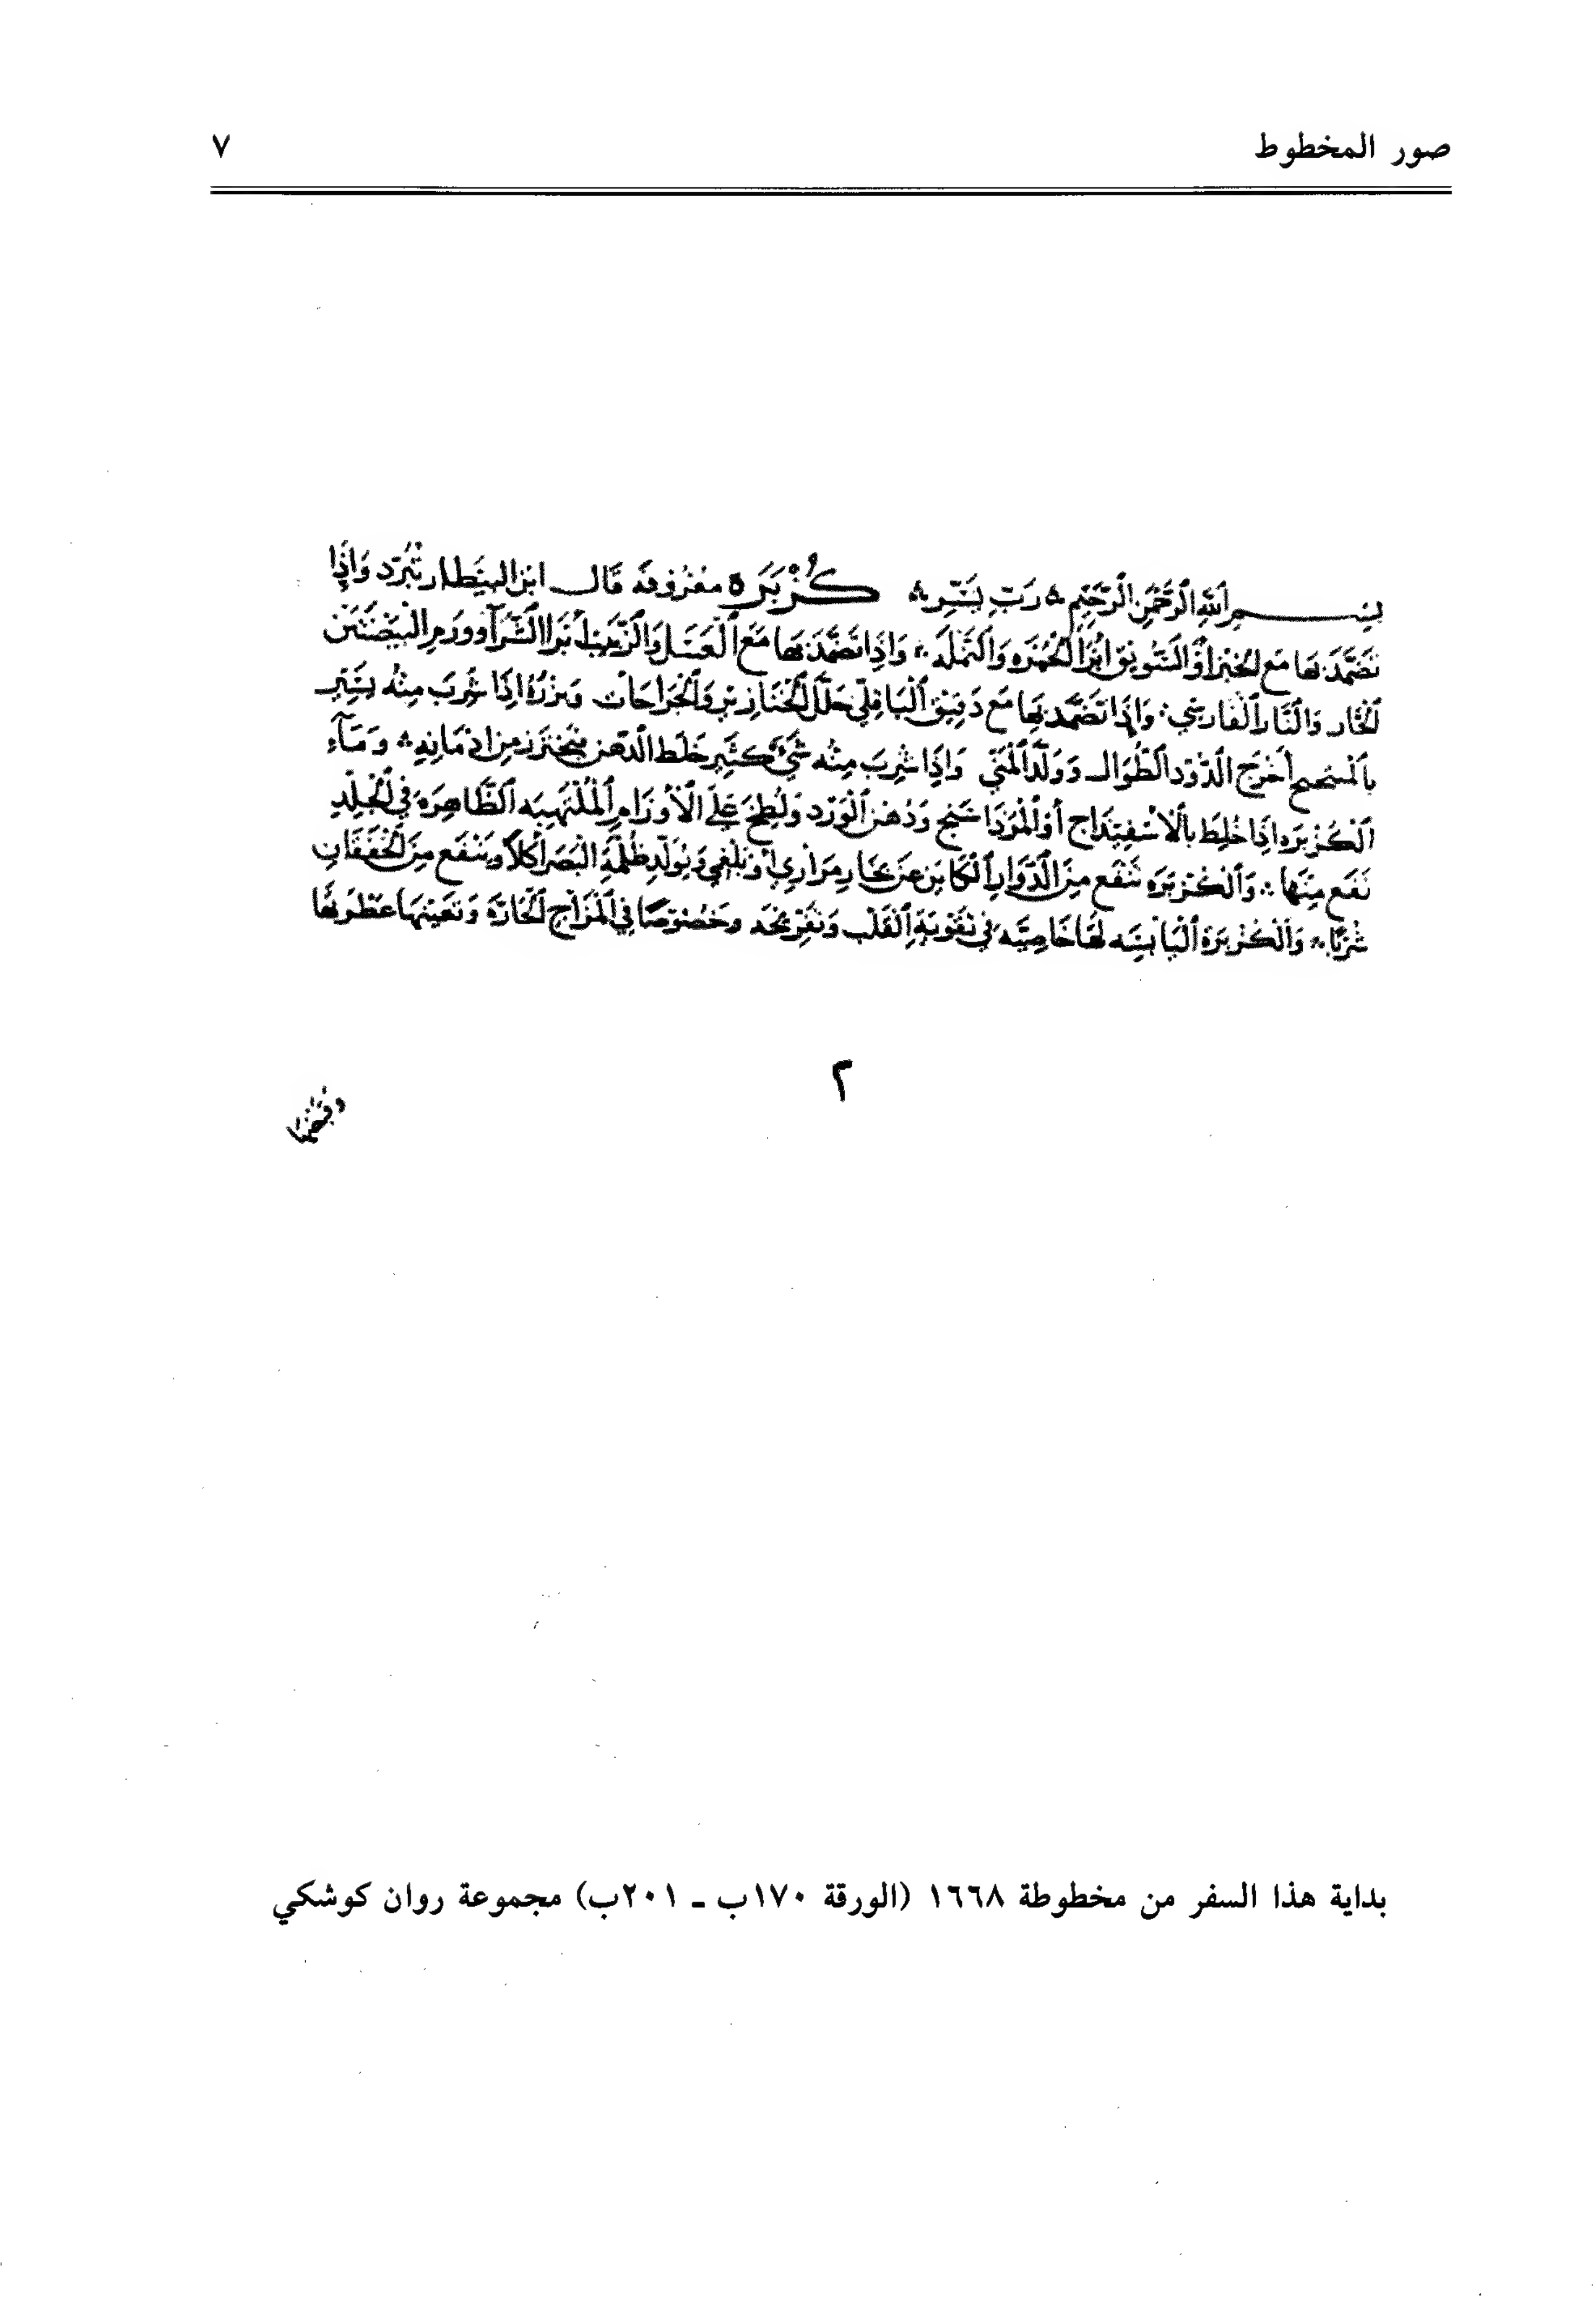 صور المخطوط ٧
بسم الله الرحمن الرحيم رب يسر كُزْبَرَة معروفة قال ابن البيطار تبرد وإذا
تضمد بها مع الخبز أو السويق ابرأ الحمره والنمله وإذا تضمد بها مع العسل والزبيب ابرا الشرا وورم البيضتين
الحار والنار الفارسي وإذا تضمد بها مع دقيق الباقلي حلل الخنازير والجراحات وبزره إذا شرب منه يسير
بالميبختج أخرج الدود الطوال وولد المني وإذا شرب منه شيء كثير خلط الذهن فيحترز من ادمانه وماء
الكزبره إذا خلط بالاسفيذاج أو المرداسنج ودهن الورد ولطخ على الأورام الملتهبه الظاهره في الجلد
نفع منها والكزبره تنفع من الدوار الكاين عن بخار مراري أو بلغمي ويولد ظلمة البصر أكلا وينفع من الخفقان
شربا والكزبرة اليابسه لها خاصيه في تقوية القلب وتفريحه وخصوصا في المزاج الحارة وتعينها عطريتها
٢
وقبضها
بداية هذا السفر من مخطوطة ١٦٦٨ (الورقة ١٧٠ب ـ ٢٠١ب) مجموعة روان كوشكي